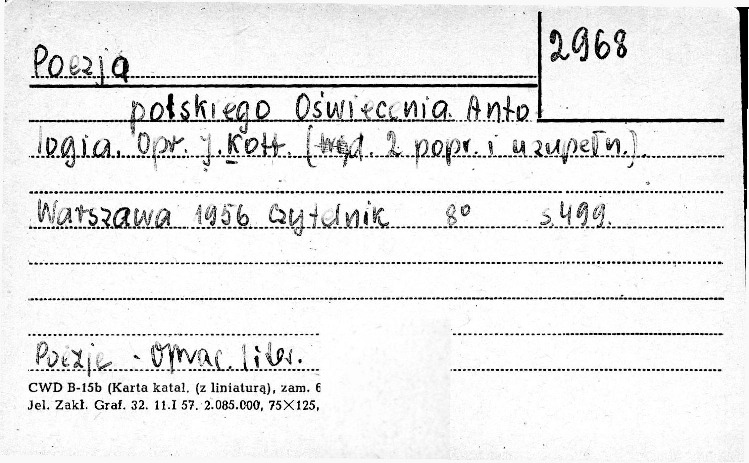 Poezja
2968
polskiego Oświecenia. Anto
logia. Opr. J. Kott. (wyd. 2 popr. i uzupełn.).
Warszawa 1956 Czytelnik 8° s. 499.
Poezje - Oprac. liter.
CWD B-15b (Karta katal. (z liniaturą), zam. 6
Jel. Zakł. Graf. 32. 11.I 57. 2.085.000, 75×125,